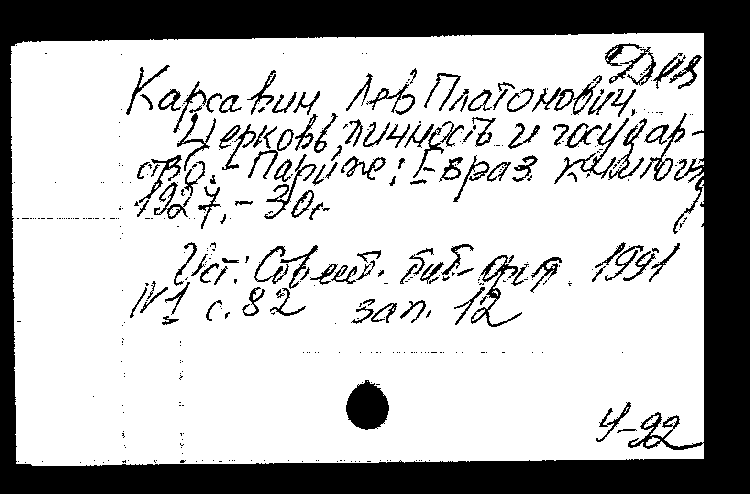 Дез
Карсавин, Лев Платонович.
Церковь, личность и государ-
ство. - Париж: Евраз. книгоиз
1927. - 30с
Ист: Советс. библ-фия. 1991
№1 с.82 зап. 12
Ч-92